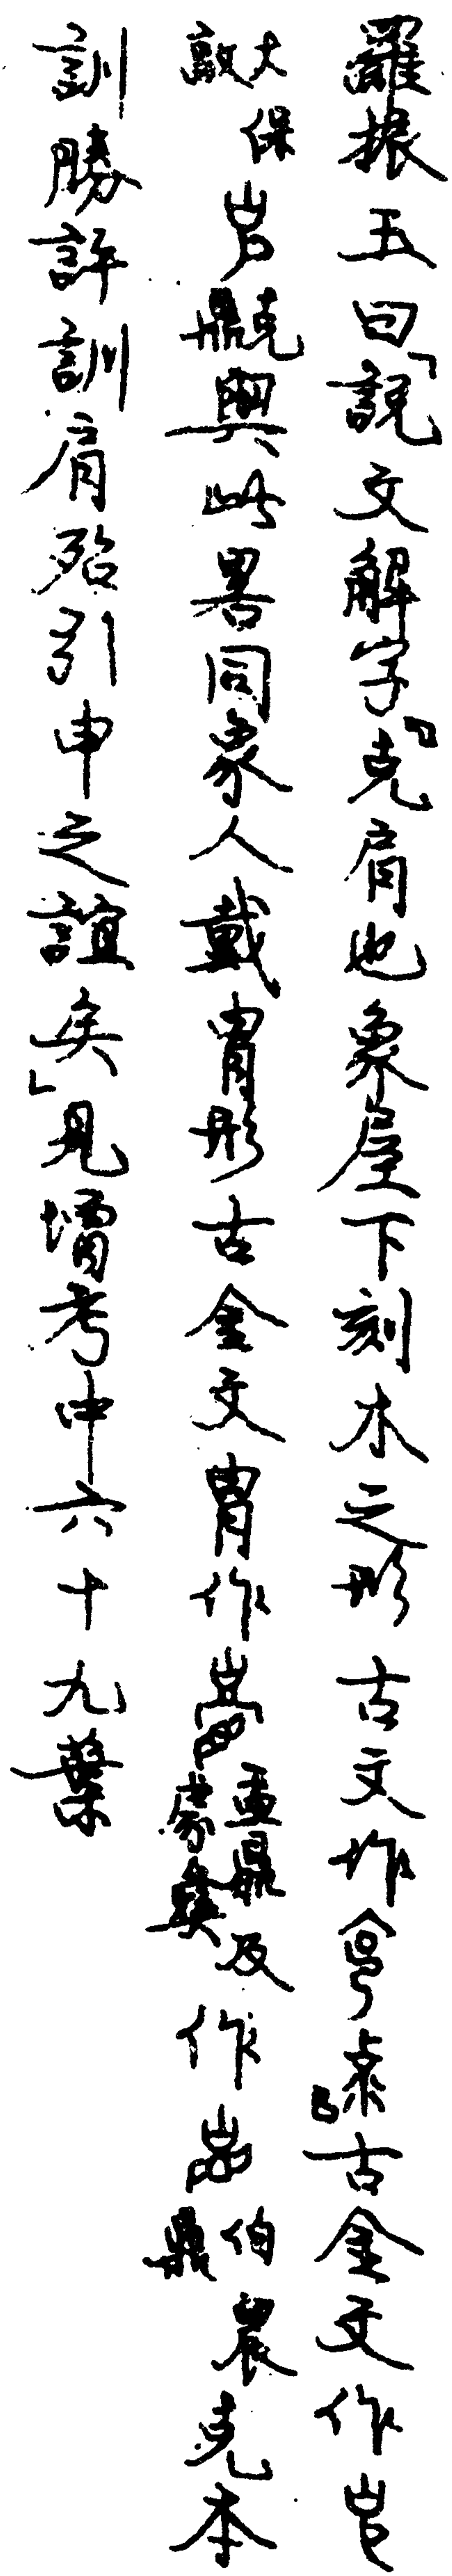 羅振玉曰「說文解字『克肩也象屋下刻木之形古文作𠅏𣑽』古金文作
大保𣪘克鼎與此畧同象人戴冑形古金文冑作盂鼎及㝬彝作伯晨鼎克本
訓勝許訓肩殆引申之誼矣」見增考中六十九葉